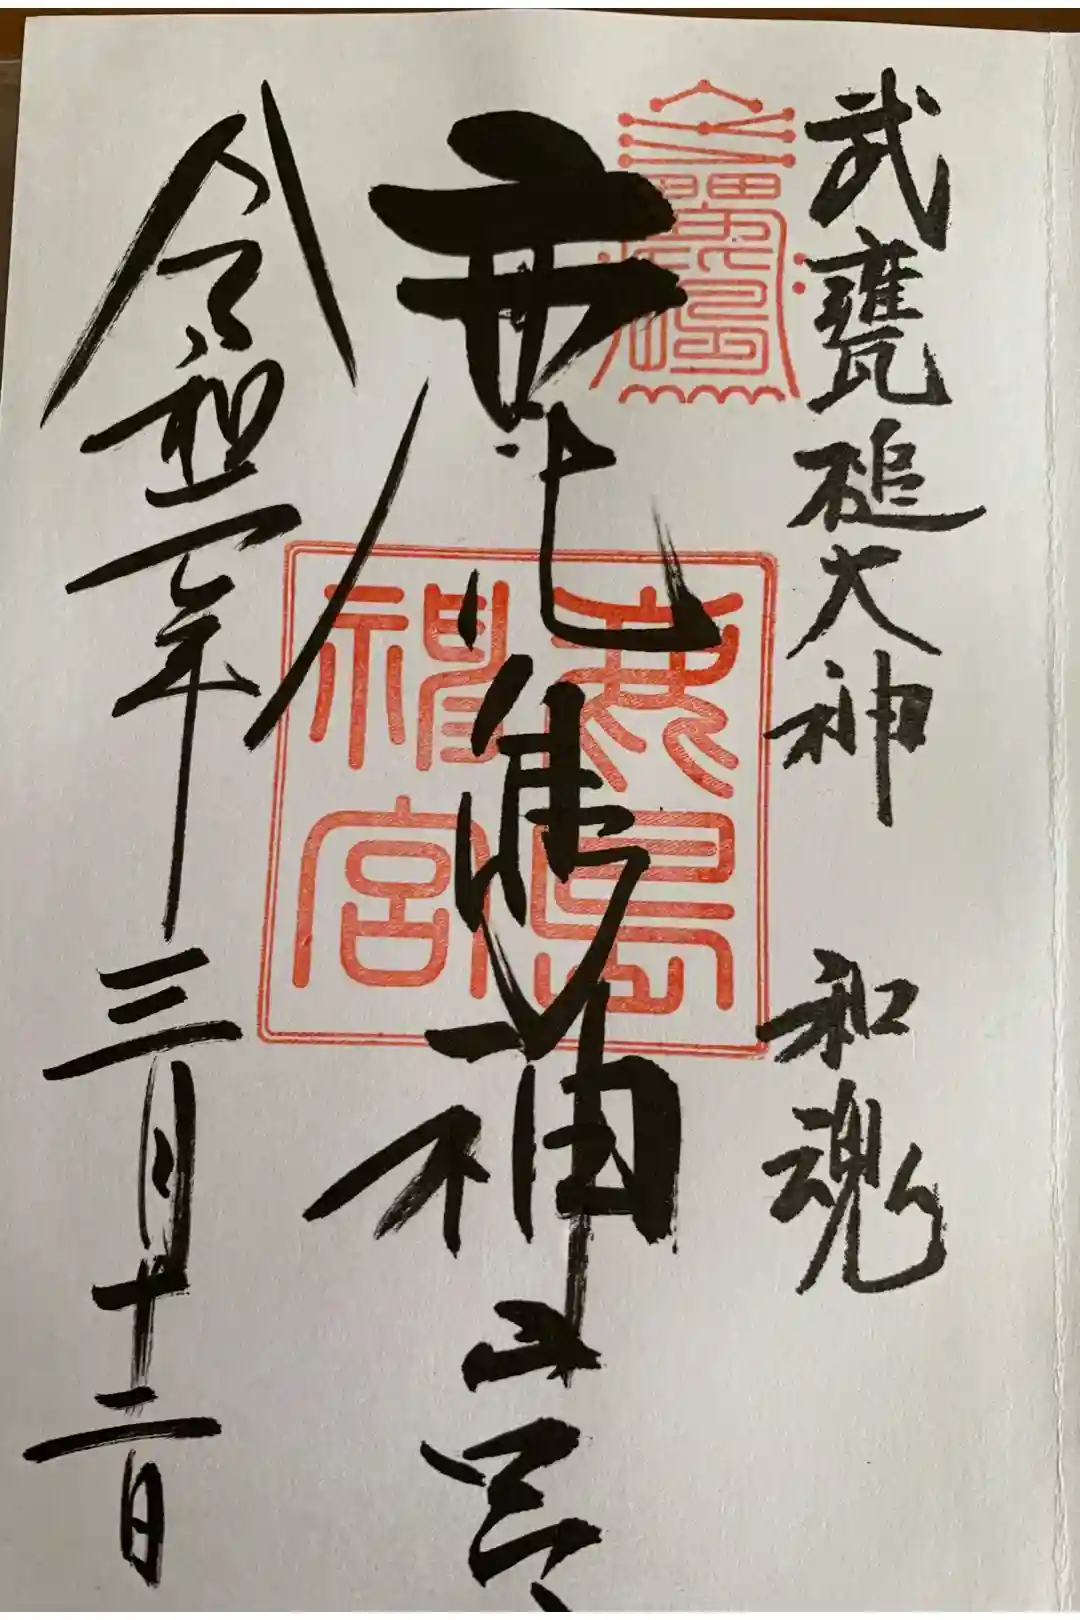 武甕槌大神 和魂
鹿島神宮
鹿島神宮
令和二年三月十二日